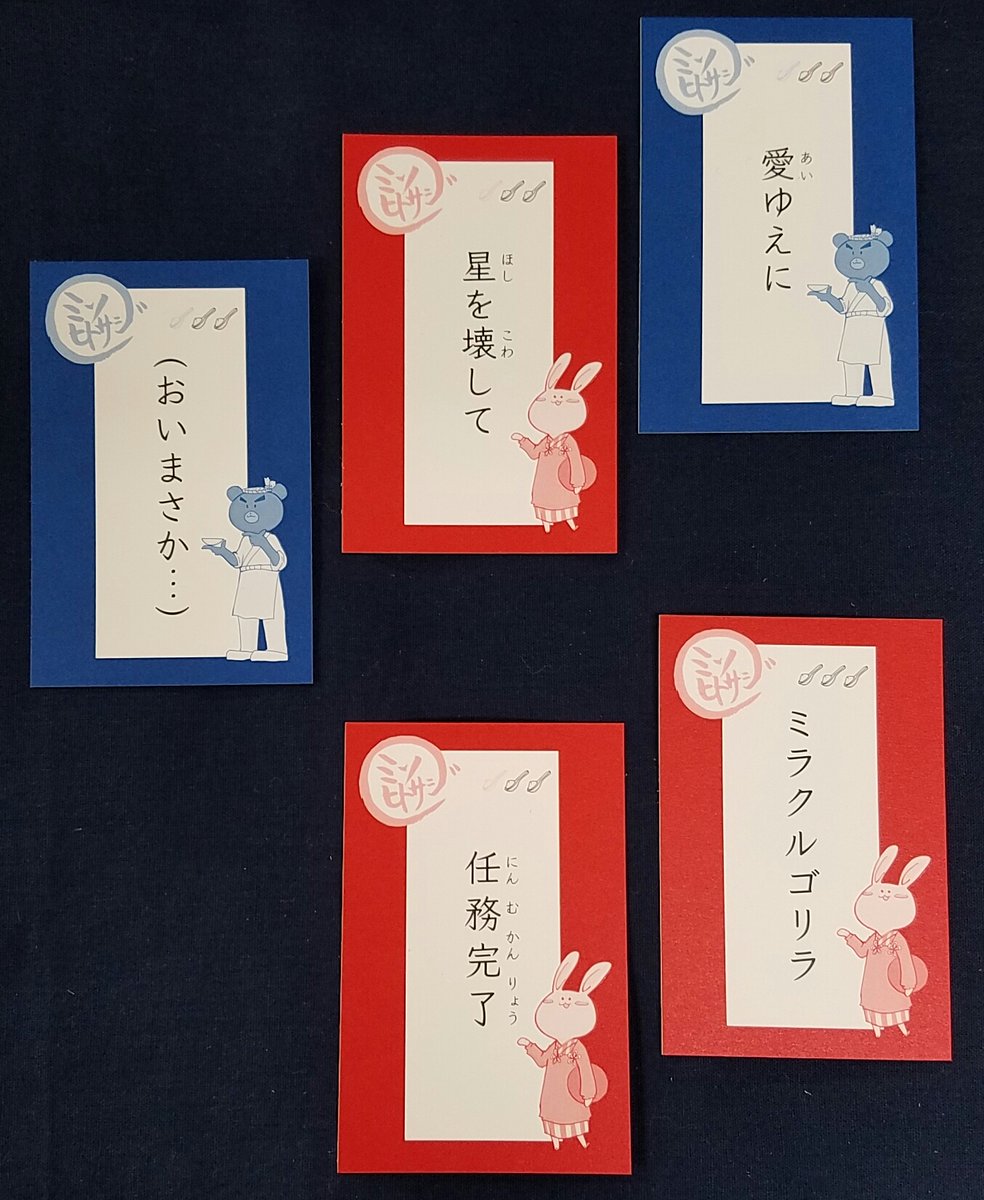 ミソ
ヒトサジ
あい
愛ゆえに
ミソ
ヒトサジ
ほし こわ
星を壊して
ミソ
ヒトサジ
(おいまさか…)
ミソ
ヒトサジ
ミラクルゴリラ
ミソ
ヒトサジ
にん む かん りょう
任務完了